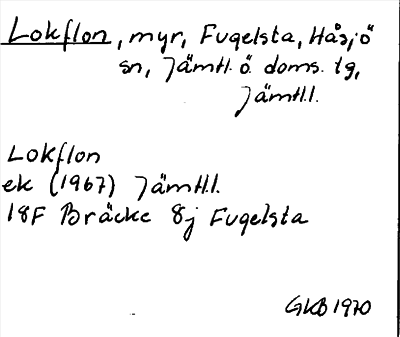 Lokflon, myr, Fugelsta, Håsjö
sn, Jämtl. ö. doms. tg,
Jämtl.l.
Lokflon
ek (1967) Jämtl.l.
18F Bräcke 8j Fugelsta
GKB 1970